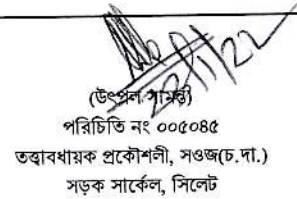 ২৮/১১/২২
(উৎপল সামন্ত)
পরিচিতি নং ০০৫০৪৫
তত্ত্বাবধায়ক প্রকৌশলী, সওজ(চ.দা.)
সড়ক সার্কেল, সিলেট